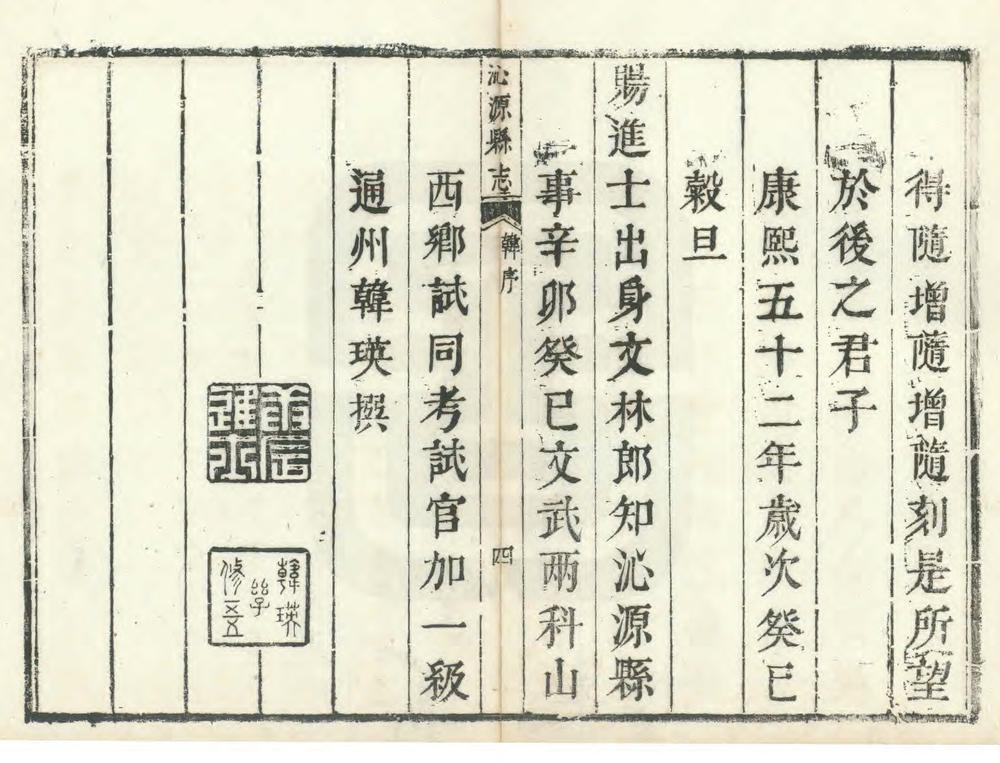 得隨增隨增隨刻是所望
於後之君子
康熙五十二年歲次癸巳
穀旦
賜進士出身文林郎知沁源縣
事辛卯癸巳文武兩科山
沁源縣志
韓序
四
西鄉試同考試官加一級
通州韓瑛撰
韓瑛
字
修五